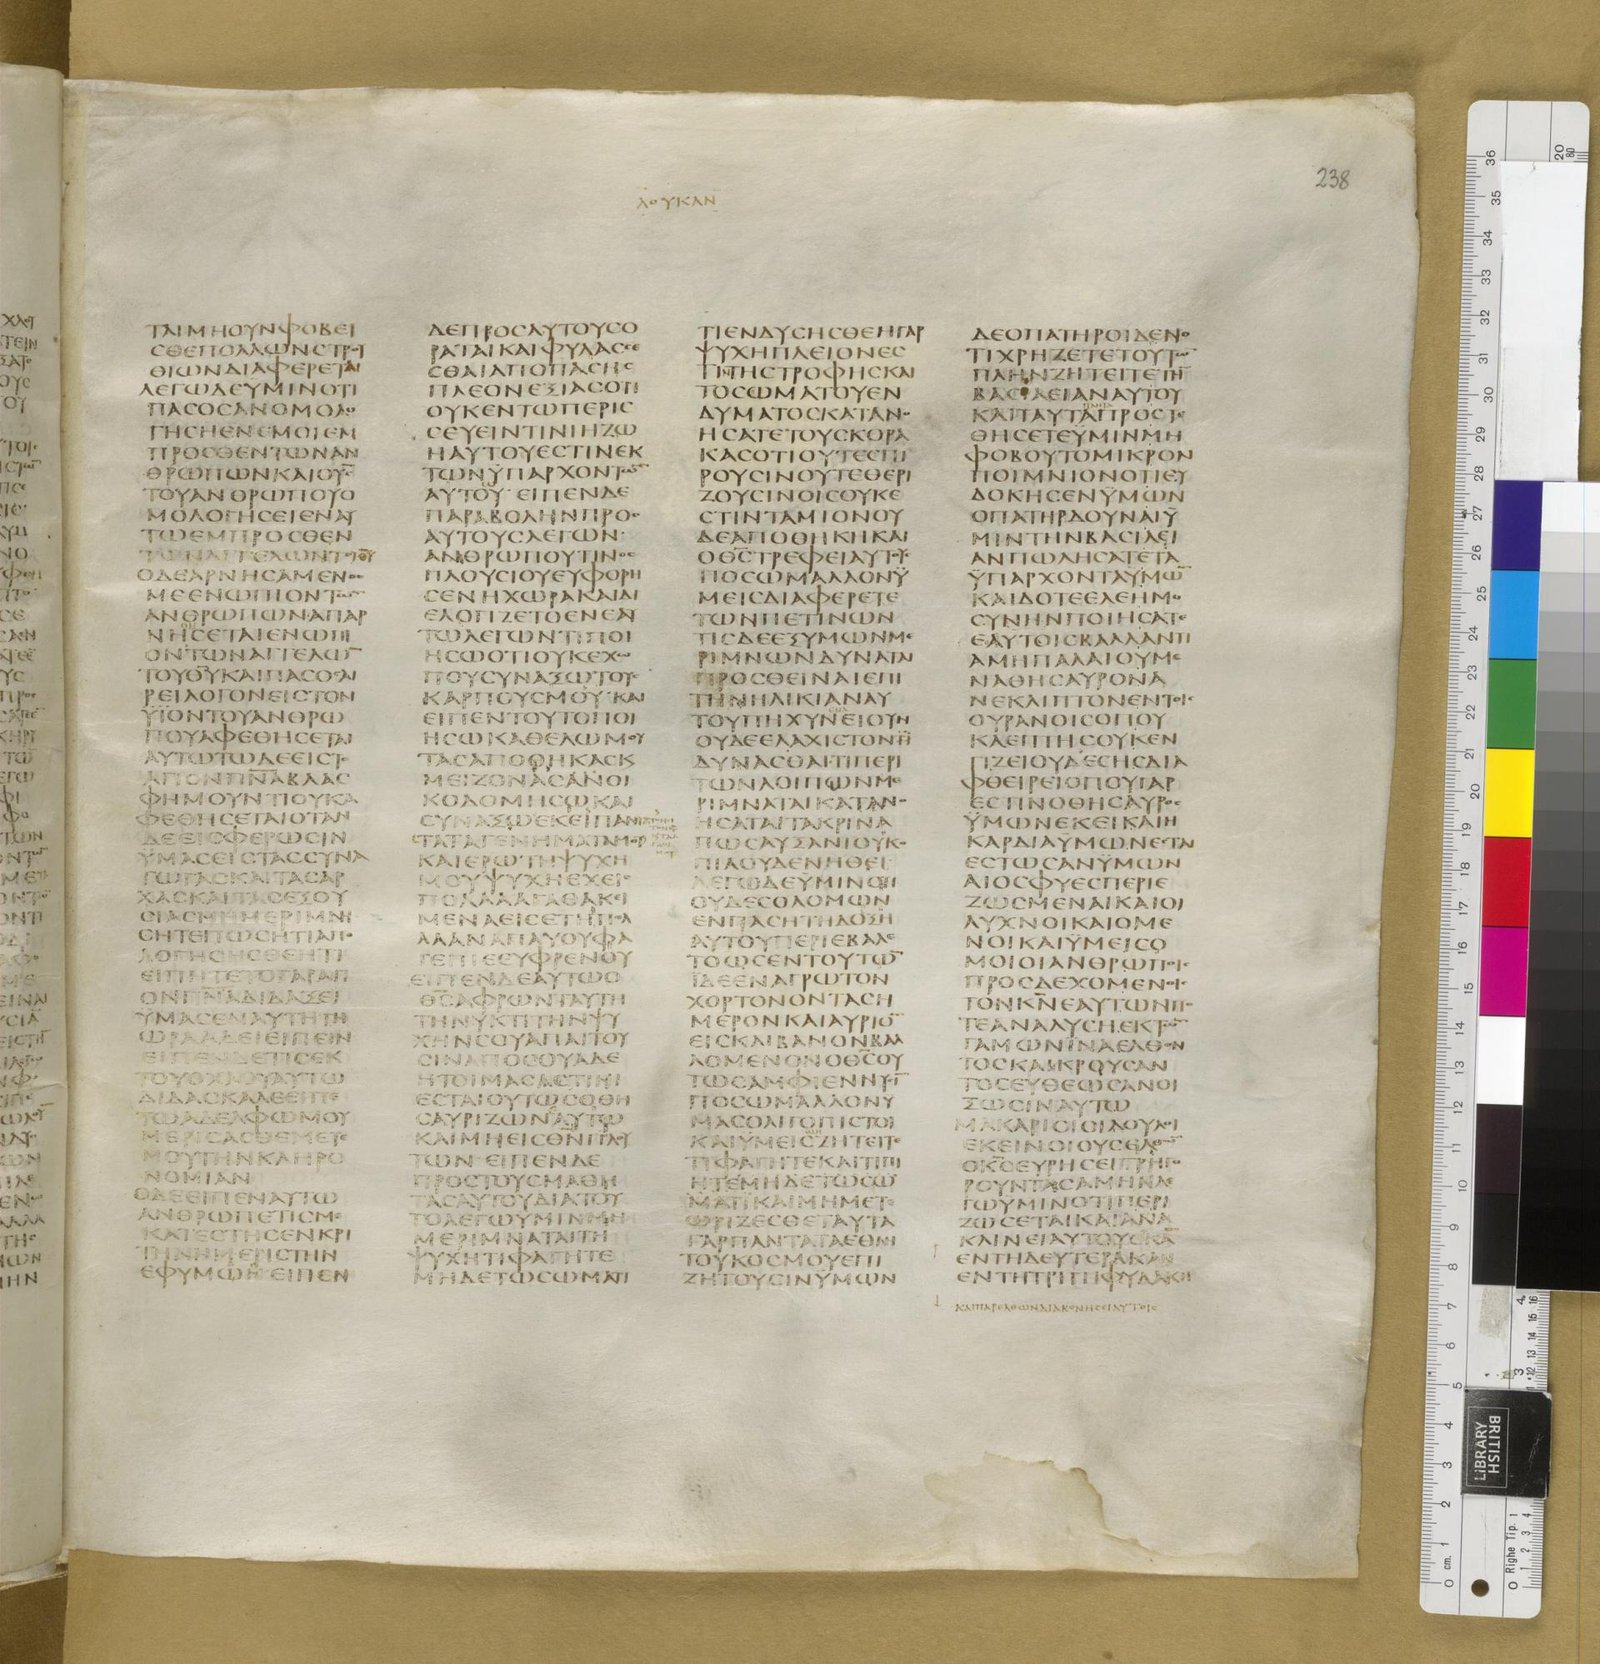 238
ΛΟΥΚΑΝ
ΤΑΙ ΜΗ ΟΥΝ ΦΟΒΕΙ
ΣΘΕ ΠΟΛΛΩΝ ΣΤΡΟΥ
ΘΙΩΝ ΔΙΑΦΕΡΕΤΑΙ
ΛΕΓΩ ΔΕ ΥΜΙΝ ΟΤΙ
ΠΑΣ ΟΣ ΑΝ ΟΜΟΛΟ
ΓΗΣΗ ΕΝ ΕΜΟΙ ΕΜ
ΠΡΟΣΘΕΝ ΤΩΝ ΑΝ
ΘΡΩΠΩΝ ΚΑΙ Ο ΥΣ
ΤΟΥ ΑΝΘΡΩΠΟΥ Ο
ΜΟΛΟΓΗΣΕΙ ΕΝ ΑΥ
ΤΩ ΕΜΠΡΟΣΘΕΝ
Ο ΔΕ ΑΡΝΗΣΑΜΕΝΟΣ
ΜΕ ΕΝΩΠΙΟΝ ΤΩΝ
ΑΝΘΡΩΠΩΝ ΑΠΑΡ
ΝΗΣΕΤΑΙ ΕΝΩΠΙ
ΟΝ ΤΩΝ ΑΓΓΕΛΩΝ
ΤΟΥ ΘΥ ΚΑΙ ΠΑΣ ΟΣ Ε
ΡΕΙ ΛΟΓΟΝ ΕΙΣ ΤΟΝ
ΥΙΟΝ ΤΟΥ ΑΝΘΡΩ
ΠΟΥ ΑΦΕΘΗΣΕΤΑΙ
ΑΥΤΩ ΤΩ ΔΕ ΕΙΣ ΤΟ
ΑΓΙΟΝ ΠΝΑ ΒΛΑΣ
ΦΗΜΟΥΝΤΙ ΟΥΚ Α
ΦΕΘΗΣΕΤΑΙ ΟΤΑΝ
ΔΕ ΕΙΣΦΕΡΩΣΙΝ
ΥΜΑΣ ΕΙΣ ΤΑΣ ΣΥΝΑ
ΓΩΓΑΣ ΚΑΙ ΤΑΣ ΑΡ
ΧΑΣ ΚΑΙ ΤΑΣ ΕΞΟΥ
ΣΙΑΣ ΜΗ ΜΕΡΙΜΝΗ
ΣΗΤΕ ΠΩΣ Η ΤΙ ΑΠΟ
ΛΟΓΗΣΗΣΘΕ Η ΤΙ
ΕΙΠΗΤΕ ΤΟ ΓΑΡ ΑΓΙ
ΟΝ ΠΝΑ ΔΙΔΑΞΕΙ
ΥΜΑΣ ΕΝ ΑΥΤΗ ΤΗ
ΩΡΑ Α ΔΕΙ ΕΙΠΕΙΝ
ΕΙΠΕΝ ΔΕ ΤΙΣ ΕΚ
ΤΟΥ ΟΧΛΟΥ ΑΥΤΩ
ΔΙΔΑΣΚΑΛΕ ΕΙΠΕ
ΤΩ ΑΔΕΛΦΩ ΜΟΥ
ΜΕΡΙΣΑΣΘΕ ΜΕΤ Ε
ΜΟΥ ΤΗΝ ΚΛΗΡΟ
ΝΟΜΙΑΝ
Ο ΔΕ ΕΙΠΕΝ ΑΥΤΩ
ΑΝΘΡΩΠΕ ΤΙΣ ΜΕ
ΚΑΤΕΣΤΗΣΕΝ ΚΡΙ
ΤΗΝ Η ΜΕΡΙΣΤΗΝ
ΕΦ ΥΜΩΝ ΕΙΠΕΝ
ΔΕ ΠΡΟΣ ΑΥΤΟΥΣ Ο
ΡΑΤΑΙ ΚΑΙ ΦΥΛΑΣΣΕ
ΣΘΑΙ ΑΠΟ ΠΑΣΗΣ
ΠΛΕΟΝΕΞΙΑΣ ΟΤΙ
ΟΥΚ ΕΝ ΤΩ ΠΕΡΙΣ
ΣΕΥΕΙΝ ΤΙΝΙ Η ΖΩ
Η ΑΥΤΟΥ ΕΣΤΙΝ ΕΚ
ΤΩΝ ΥΠΑΡΧΟΝΤΩΝ
ΑΥΤΟΥ ΕΙΠΕΝ ΔΕ
ΠΑΡΑΒΟΛΗΝ ΠΡΟΣ
ΑΥΤΟΥΣ ΛΕΓΩΝ
ΑΝΘΡΩΠΟΥ ΤΙΝΟΣ
ΠΛΟΥΣΙΟΥ ΕΥΦΟΡΗ
ΣΕΝ Η ΧΩΡΑ ΚΑΙ ΔΙ
ΕΛΟΓΙΖΕΤΟ ΕΝ ΕΑΥ
ΤΩ ΛΕΓΩΝ ΤΙ ΠΟΙ
ΗΣΩ ΟΤΙ ΟΥΚ ΕΧΩ
ΠΟΥ ΣΥΝΑΞΩ ΤΟΥΣ
ΚΑΡΠΟΥΣ ΜΟΥ ΚΑΙ
ΕΙΠΕΝ ΤΟΥΤΟ ΠΟΙ
ΗΣΩ ΚΑΘΕΛΩ ΜΟΥ
ΤΑΣ ΑΠΟΘΗΚΑΣ Κ
ΜΕΙΖΟΝΑΣ ΑΝΟΙ
ΚΟΔΟΜΗΣΩ ΚΑΙ
ΣΥΝΑΞΩ ΕΚΕΙ ΠΑΝ
ΤΑ ΤΑ ΓΕΝΗΜΑΤΑ ΜΟΥ
ΚΑΙ ΕΡΩ ΤΗ ΨΥΧΗ
ΜΟΥ ΨΥΧΗ ΕΧΕΙΣ
ΠΟΛΛΑ ΑΓΑΘΑ ΚΕΙ
ΜΕΝΑ ΕΙΣ ΕΤΗ ΠΟΛ
ΛΑ ΑΝΑΠΑΥΟΥ ΦΑ
ΓΕ ΠΙΕ ΕΥΦΡΕΝΟΥ
ΕΙΠΕΝ ΔΕ ΑΥΤΩ Ο
ΘΣ ΑΦΡΩΝ ΤΑΥΤΗ
ΤΗ ΝΥΚΤΙ ΤΗΝ ΨΥ
ΧΗΝ ΣΟΥ ΑΠΑΙΤΟΥ
ΣΙΝ ΑΠΟ ΣΟΥ Α ΔΕ
ΗΤΟΙΜΑΣΑΣ ΤΙΝΙ
ΕΣΤΑΙ ΟΥΤΩΣ Ο ΘΗ
ΣΑΥΡΙΖΩΝ ΑΥΤΩ
ΚΑΙ ΜΗ ΕΙΣ ΘΝ ΠΛΟΥ
ΤΩΝ ΕΙΠΕΝ ΔΕ
ΠΡΟΣ ΤΟΥΣ ΜΑΘΗ
ΤΑΣ ΑΥΤΟΥ ΔΙΑ ΤΟΥ
ΤΟ ΛΕΓΩ ΥΜΙΝ ΜΗ
ΜΕΡΙΜΝΑΤΑΙ ΤΗ
ΨΥΧΗ ΤΙ ΦΑΓΗΤΕ
ΜΗΔΕ ΤΩ ΣΩΜΑΤΙ
ΤΙ ΕΝΔΥΣΗΣΘΕ Η ΓΑΡ
ΨΥΧΗ ΠΛΕΙΟΝ ΕΣ
ΤΙ ΤΗΣ ΤΡΟΦΗΣ ΚΑΙ
ΤΟ ΣΩΜΑ ΤΟΥ ΕΝ
ΔΥΜΑΤΟΣ ΚΑΤΑΝΟ
ΗΣΑΤΕ ΤΟΥΣ ΚΟΡΑ
ΚΑΣ ΟΤΙ ΟΥΤΕ ΣΠΙ
ΡΟΥΣΙΝ ΟΥΤΕ ΘΕΡΙ
ΖΟΥΣΙΝ ΟΙΣ ΟΥΚ Ε
ΣΤΙΝ ΤΑΜΙΟΝ ΟΥ
ΔΕ ΑΠΟΘΗΚΗ ΚΑΙ
Ο ΘΣ ΤΡΕΦΕΙ ΑΥΤΟΥΣ
ΠΟΣΩ ΜΑΛΛΟΝ Υ
ΜΕΙΣ ΔΙΑΦΕΡΕΤΕ
ΤΩΝ ΠΕΤΙΝΩΝ
ΤΙΣ ΔΕ ΕΞ ΥΜΩΝ ΜΕ
ΡΙΜΝΩΝ ΔΥΝΑΤΑΙ
ΠΡΟΣΘΕΙΝΑΙ ΕΠΙ
ΤΗΝ ΗΛΙΚΙΑΝ ΑΥ
ΤΟΥ ΠΗΧΥΝ ΕΙ ΟΥΝ
ΟΥΔΕ ΕΛΑΧΙΣΤΟΝ
ΔΥΝΑΣΘΑΙ ΤΙ ΠΕΡΙ
ΤΩΝ ΛΟΙΠΩΝ ΜΕ
ΡΙΜΝΑΤΑΙ ΚΑΤΑΝΟ
ΗΣΑΤΑΙ ΤΑ ΚΡΙΝΑ
ΠΩΣ ΑΥΞΑΝΙ ΟΥ ΚΟ
ΠΙΑ ΟΥΔΕ ΝΗΘΕΙ
ΛΕΓΩ ΔΕ ΥΜΙΝ ΟΤΙ
ΟΥΔΕ ΣΟΛΟΜΩΝ
ΕΝ ΠΑΣΗ ΤΗ ΔΟΞΗ
ΑΥΤΟΥ ΠΕΡΙΕΒΑΛΕ
ΤΟ ΩΣ ΕΝ ΤΟΥΤΩΝ
ΙΔΕ ΕΝ ΑΓΡΩ ΤΟΝ
ΧΟΡΤΟΝ ΟΝΤΑ ΣΗ
ΜΕΡΟΝ ΚΑΙ ΑΥΡΙΟΝ
ΕΙΣ ΚΛΙΒΑΝΟΝ ΒΑΛ
ΛΟΜΕΝΟΝ Ο ΘΣ ΟΥ
ΤΩΣ ΑΜΦΙΕΝΝΥΣΙ
ΠΟΣΩ ΜΑΛΛΟΝ Υ
ΜΑΣ ΟΛΙΓΟΠΙΣΤΟΙ
ΚΑΙ ΥΜΕΙΣ ΖΗΤΕΙΤΕ
ΤΙ ΦΑΓΗΤΕ ΚΑΙ ΤΙ ΠΙ
ΗΤΕ ΜΗΔΕ ΤΩ ΣΩ
ΜΑΤΙ ΚΑΙ ΜΗ ΜΕΤΕ
ΩΡΙΖΕΣΘΕ ΤΑΥΤΑ
ΓΑΡ ΠΑΝΤΑ ΤΑ ΕΘΝΗ
ΤΟΥ ΚΟΣΜΟΥ ΕΠΙ
ΖΗΤΟΥΣΙΝ ΥΜΩΝ
ΔΕ Ο ΠΑΤΗΡ ΟΙΔΕΝ Ο
ΤΙ ΧΡΗΖΕΤΕ ΤΟΥΤΩΝ
ΠΛΗΝ ΖΗΤΕΙΤΕ ΤΗΝ
ΒΑΣΙΛΕΙΑΝ ΑΥΤΟΥ
ΚΑΙ ΤΑΥΤΑ ΠΡΟΣΤΕ
ΘΗΣΕΤΕ ΥΜΙΝ ΜΗ
ΦΟΒΟΥ ΤΟ ΜΙΚΡΟΝ
ΠΟΙΜΝΙΟΝ ΟΤΙ ΕΥ
ΔΟΚΗΣΕΝ ΥΜΩΝ
Ο ΠΑΤΗΡ ΔΟΥΝΑΙ Υ
ΜΙΝ ΤΗΝ ΒΑΣΙΛΕΙ
ΑΝ ΠΩΛΗΣΑΤΕ ΤΑ
ΥΠΑΡΧΟΝΤΑ ΥΜΩΝ
ΚΑΙ ΔΟΤΕ ΕΛΕΗΜΟ
ΣΥΝΗΝ ΠΟΙΗΣΑΤΕ
ΕΑΥΤΟΙΣ ΒΑΛΛΑΝΤΙ
Α ΜΗ ΠΑΛΑΙΟΥΜΕ
ΝΑ ΘΗΣΑΥΡΟΝ Α
ΝΕΚΛΙΠΤΟΝ ΕΝ ΤΟΙΣ
ΟΥΡΑΝΟΙΣ ΟΠΟΥ
ΚΛΕΠΤΗΣ ΟΥΚ ΕΝ
ΓΙΖΕΙ ΟΥΔΕ ΣΗΣ ΔΙΑ
ΦΘΕΙΡΕΙ ΟΠΟΥ ΓΑΡ
ΕΣΤΙΝ Ο ΘΗΣΑΥΡΟΣ
ΥΜΩΝ ΕΚΕΙ ΚΑΙ Η
ΚΑΡΔΙΑ ΥΜΩΝ ΕΣΤΑΙ
ΕΣΤΩΣΑΝ ΥΜΩΝ
ΑΙ ΟΣΦΥΕΣ ΠΕΡΙΕ
ΖΩΣΜΕΝΑΙ ΚΑΙ ΟΙ
ΛΥΧΝΟΙ ΚΑΙΟΜΕ
ΝΟΙ ΚΑΙ ΥΜΕΙΣ Ο
ΜΟΙΟΙ ΑΝΘΡΩΠΟΙΣ
ΠΡΟΣΔΕΧΟΜΕΝΟΙΣ
ΤΟΝ ΚΝ ΕΑΥΤΩΝ ΠΟ
ΤΕ ΑΝΑΛΥΣΗ ΕΚ ΤΩΝ
ΓΑΜΩΝ ΙΝΑ ΕΛΘΟΝ
ΤΟΣ ΚΑΙ ΚΡΟΥΣΑΝ
ΤΟΣ ΕΥΘΕΩΣ ΑΝΟΙ
ΞΩΣΙΝ ΑΥΤΩ
ΜΑΚΑΡΙΟΙ ΟΙ ΔΟΥΛΟΙ
ΕΚΕΙΝΟΙ ΟΥΣ ΕΛΘΩΝ
Ο ΚΣ ΕΥΡΗΣΕΙ ΓΡΗΓΟ
ΡΟΥΝΤΑΣ ΑΜΗΝ ΛΕ
ΓΩ ΥΜΙΝ ΟΤΙ ΠΕΡΙ
ΖΩΣΕΤΑΙ ΚΑΙ ΑΝΑ
ΚΛΙΝΕΙ ΑΥΤΟΥΣ ΚΑΝ
ΕΝ ΤΗ ΔΕΥΤΕΡΑ ΚΑΝ
ΕΝ ΤΗ ΤΡΙΤΗ ΦΥΛΑΚΗ
ΚΑΙ ΠΑΡΕΛΘΩΝ ΔΙΑΚΟΝΗΣΕΙ ΑΥΤΟΙΣ
BRITISH
LIBRARY
cm. 1
Righe Tip. 1